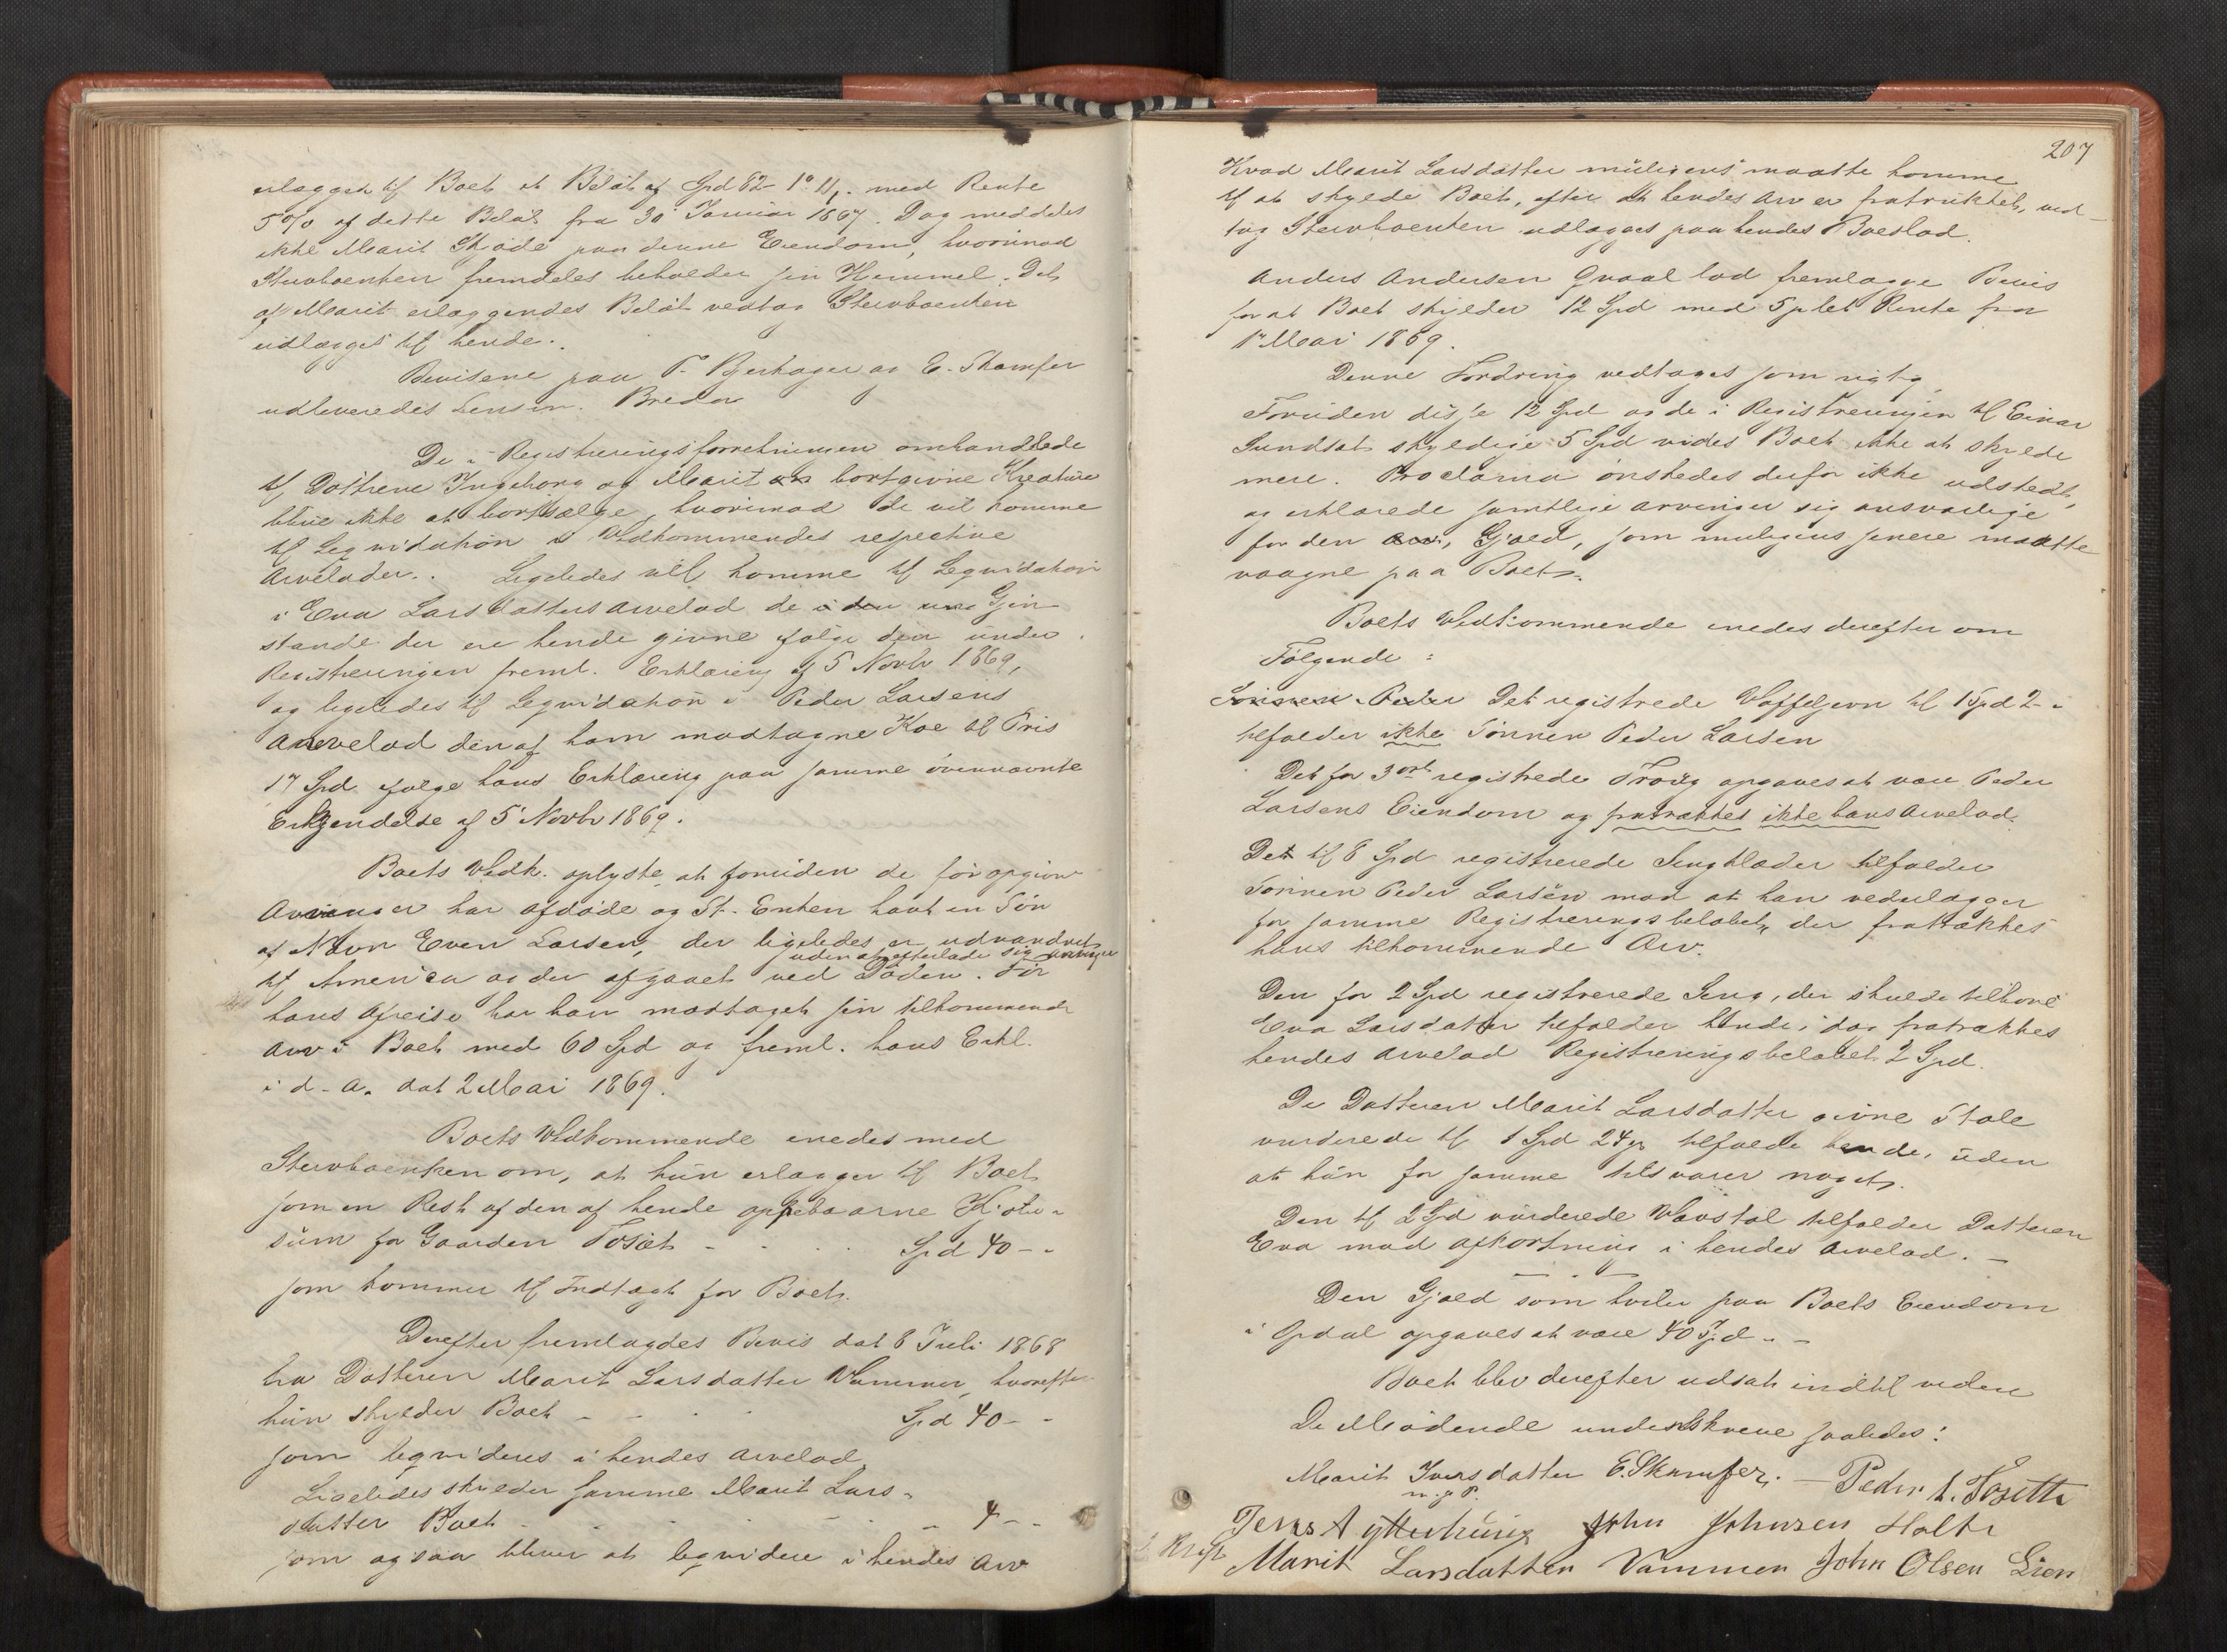 erlægges til Boet et Beløb af Spd 82- 1° 11, med Rente
5% af dette Beløb fra 30 Januar 1867. Dog meddeles
ikke Marit Skjøde paa denne Eiendom, hvorimod
Stervboenken fremdeles beholder sin Hjemmel. Det
af Marit erlæggendes Beløb vedtog Stervboenken
udlægges til hende.
Beviserne paa P. Bjerkager og E. Skamfer
udleveredes Lensm. Breda
De i Registreringsforretningen omhandlede
til Døttrene Ingeborg og Marit bortgivne Kreature
blive ikke at bortsælge, hvorimod de vil komme
til Leqvidation i Vedkommendes respective
Arvelader. Ligeledes vil komme til Leqvidation
i Eva Larsdatters Arvelod de Gjen-
stande der ere hende givne ifølge den under
Registreringen freml. Erklæring af 5 Novbr 1869,
og ligeledes til Leqvidation i Peder Larsens
Arvelod den af ham modtagne Koe til Pris
17 Spd ifølge hans Erklæring paa samme ovennævnte
Erkjendelse af 5 Novbr 1869.
Boets Vedk. oplyste, at foruden de før opgivne
Arvinger har afdøde og St. Enken havt en Søn
af Navn Even Larsen, der ligeledes er udvandret
uden at efterlade sig Arvinger
til America og der afgaaet ved Døden. Før
hans Afreise har han modtaget sin tilkommende
Arv i Boet med 60 Spd og freml. hans Erkl.
i d. A. dat 2 Mai 1869.
Boets Vedkommende enedes med
Stervboenken om, at hun erlægger til Boet
som en Rest af den af hende oppebaarne Kjøbe-
sum for Gaarden Tosæt - - - Spd 40 - -
som kommer til Indtægt for Boet.
Derefter fremlagdes Bevis dat 8 Juli 1868
fra Datteren Marit Larsdatter Vammer, hvorefter
hun skylder Boet - - - - Spd 40 - -
som leqvideres i hendes Arvelod
Ligeledes skylder samme Marit Lars-
datter Boet - - - - - - 4 - -
som ogsaa bliver at leqvidere i hendes Arv
207
Hvad Marit Larsdatter muligens maatte komme
til at skylde Boet, efter at hendes Arv er fratrukket, ved-
tog Stervboenken udlægges paa hendes Boeslod.
Anders Andersen Qvaal lod fremlægge Bevis
for at Boet skylder 12 Spd med 5 pCet Rente fra
1ste Mai 1869.
Denne Fordring vedtages som rigtig
Foruden disse 12 Spd og de i Registreringen til Einar
Sundsæt skyldige 5 Spd vides Boet ikke at skylde
mere. Proclama ønskedes derfor ikke udstedt,
og erklærede samtlige Arvinger sig ansvarlige
for den Gjæld, som muligens senere maatte
vaagne paa Boet.
Boets Vedkommende enedes derefter om
Følgende:
Sønnen Peder Det registrede Vaffeljern til 1 Spd 2 - -
tilfalder ikke Sønnen Peder Larsen
Det for 3 ort registrede Troug opgaves at være Peder
Larsens Eiendom og fratrækkes ikke hans Arvelod.
Det til 8 Spd registrerede Sengklæder tilfalder
Sønnen Peder Larsen mod at han vederlægger
for samme Registreringsbeløbet, der fratrækkes
hans tilkommende Arv.
Den for 2 Spd registrerede Seng, der skulde tilhøre
Eva Larsdatter tilfalder hende, idag fratrækkes
hendes Arvelod Registreringsbeløbet 2 Spd.
De Datteren Marit Larsdatter givne Stole
vurderede til 1 Spd 24 s tilfalde hende, uden
at hun for samme tilsvarer noget.
Den til 2 Spd vurderede Vævstol tilfalder Datteren
Eva mod afkortning i hendes Arvelod. -
Den Gjæld som hviler paa Boets Eiendom
i Opdal opgaves at være 40 Spd - -
Boet blev derefter udsat indtil videre
De Mødende underskreve saaledes:
Marit Iversdatter E. Skamfer. - Peder L. Tosett
m. p. P.
Jens A Ytterhuus John Johnsen Holte
Marit Larsdatter Vammer John Olsen Lien